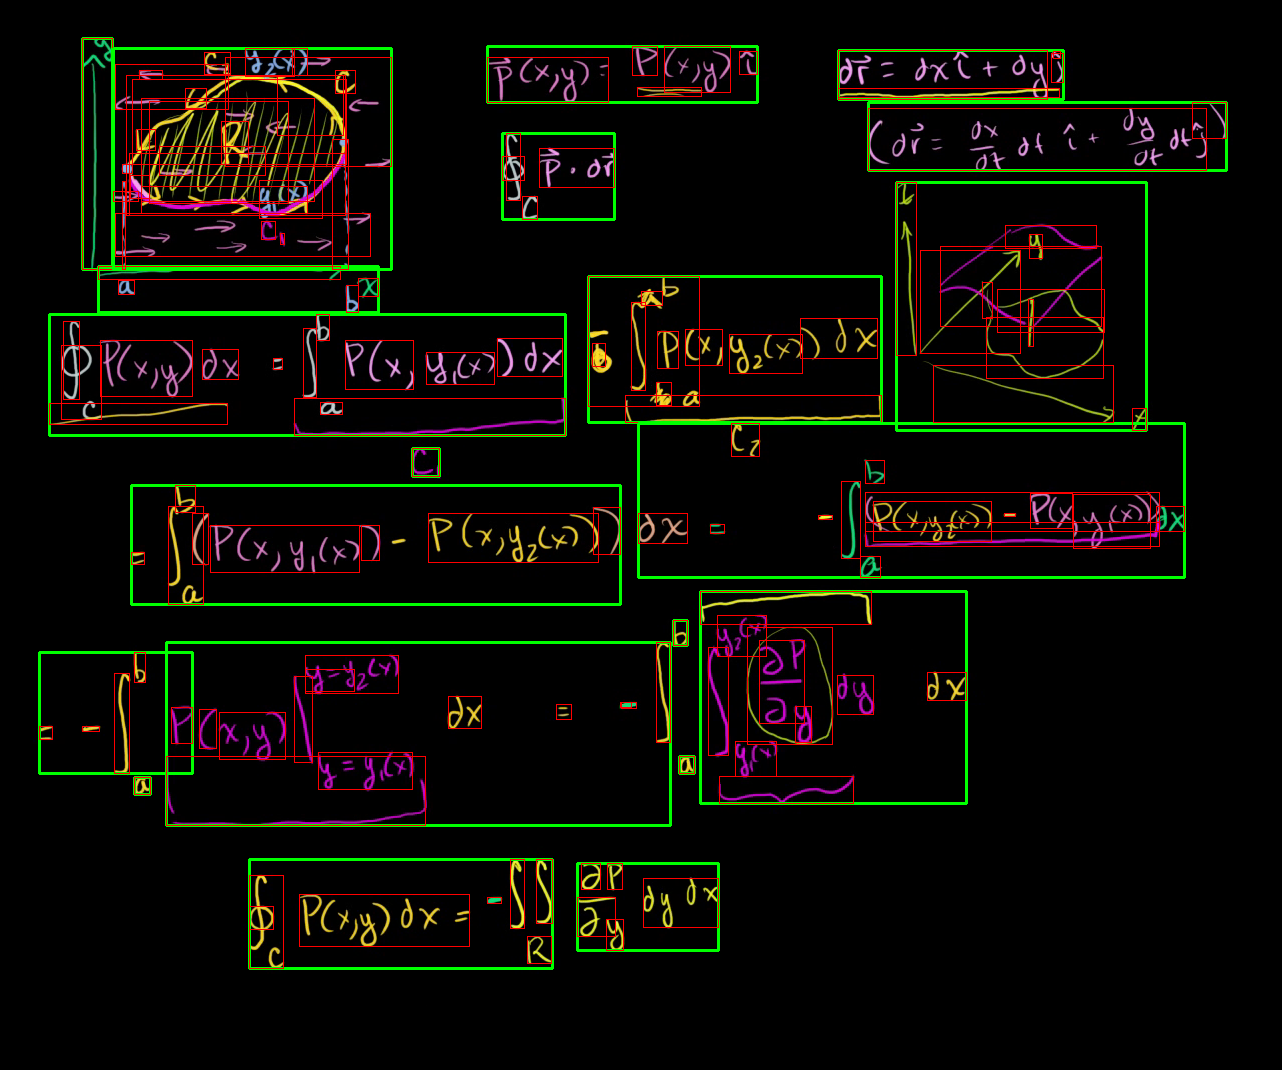 y C₂ y₂(x) C
R
y₁(x)
C₁
a b x
P⃗(x,y) = P(x,y) î
∮_C P⃗ · dr⃗
dr⃗ = dx î + dy ĵ
(dr⃗ = dx/dt dt î + dy/dt dt ĵ)
y
x
∮_C P(x,y) dx = ∫_a^b P(x, y₁(x)) dx
∫_a^b P(x, y₂(x)) dx
C₁
C₂
= ∫_a^b (P(x,y₁(x)) - P(x,y₂(x))) dx = - ∫_a^b (P(x,y₂(x)) - P(x,y₁(x))) dx
= - ∫_a^b P(x,y) |_{y=y₁(x)}^{y=y₂(x)} dx = - ∫_a^b ∫_{y₁(x)}^{y₂(x)} ∂P/∂y dy dx
∮_C P(x,y) dx = - ∬_R ∂P/∂y dy dx